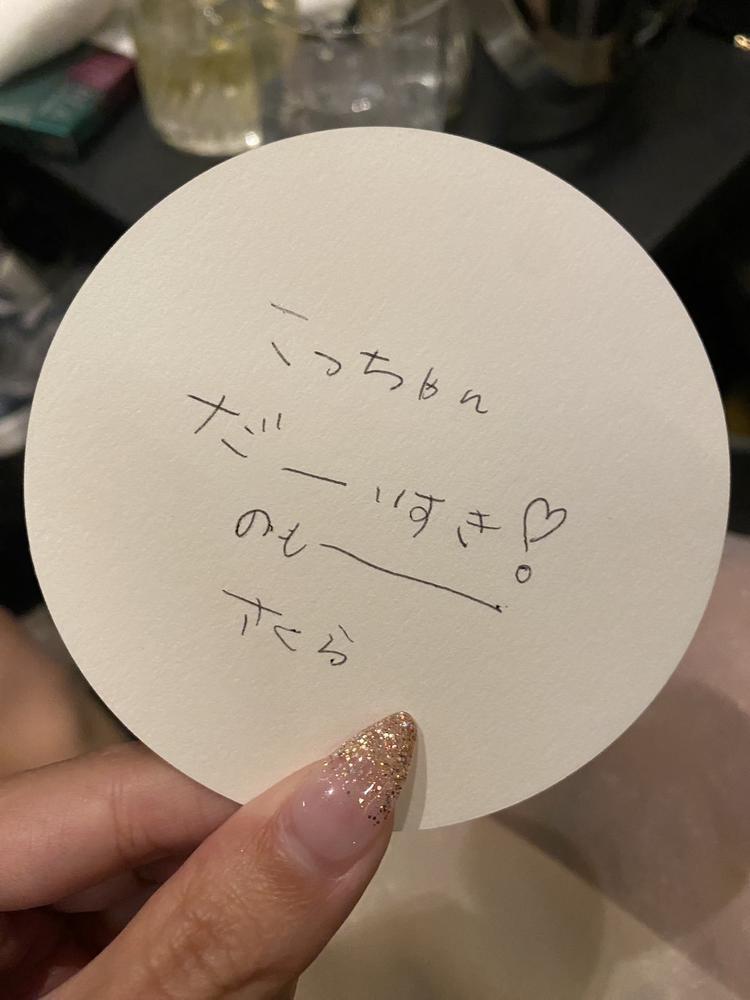 こっちゃん
だーいすき♡!
のもー
さくら